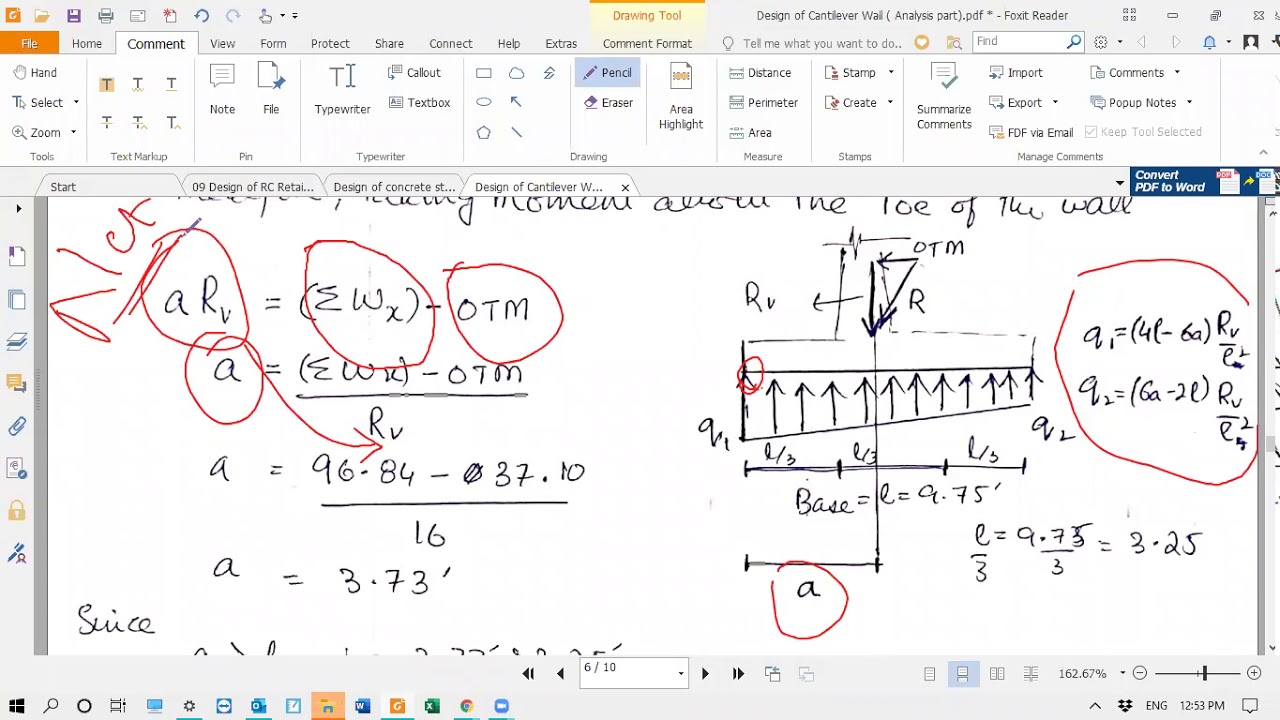 Drawing Tool
Design of Cantilever Wall ( Analysis part).pdf * - Foxit Reader
File Home Comment View Form Protect Share Connect Help Extras Comment Format Tell me what you want to do.. Find
Hand
Select
Zoom
Tools
Text Markup
Note
File
Pin
Typewriter
Callout
Textbox
Typewriter
Pencil
Eraser
Drawing
Area Highlight
Distance
Perimeter
Area
Measure
Stamp
Create
Stamps
Summarize Comments
Import
Export
FDF via Email
Comments
Popup Notes
Keep Tool Selected
Manage Comments
Start
09 Design of RC Retai...
Design of concrete st...
Design of Cantilever W...
Convert PDF to Word
moment about the Toe of the wall
a Rv = (ΣWx) - OTM
a = (ΣWx) - OTM
Rv
a = 96.84 - 37.10
16
a = 3.73'
Since
OTM
Rv
R
q1
q2
l/3 l/3 l/3
Base = l = 9.75'
l/3 = 9.75/3 = 3.25
a
q1=(4l-6a) Rv/l²
q2=(6a-2l) Rv/l²
6 / 10
162.67%
ENG 12:53 PM